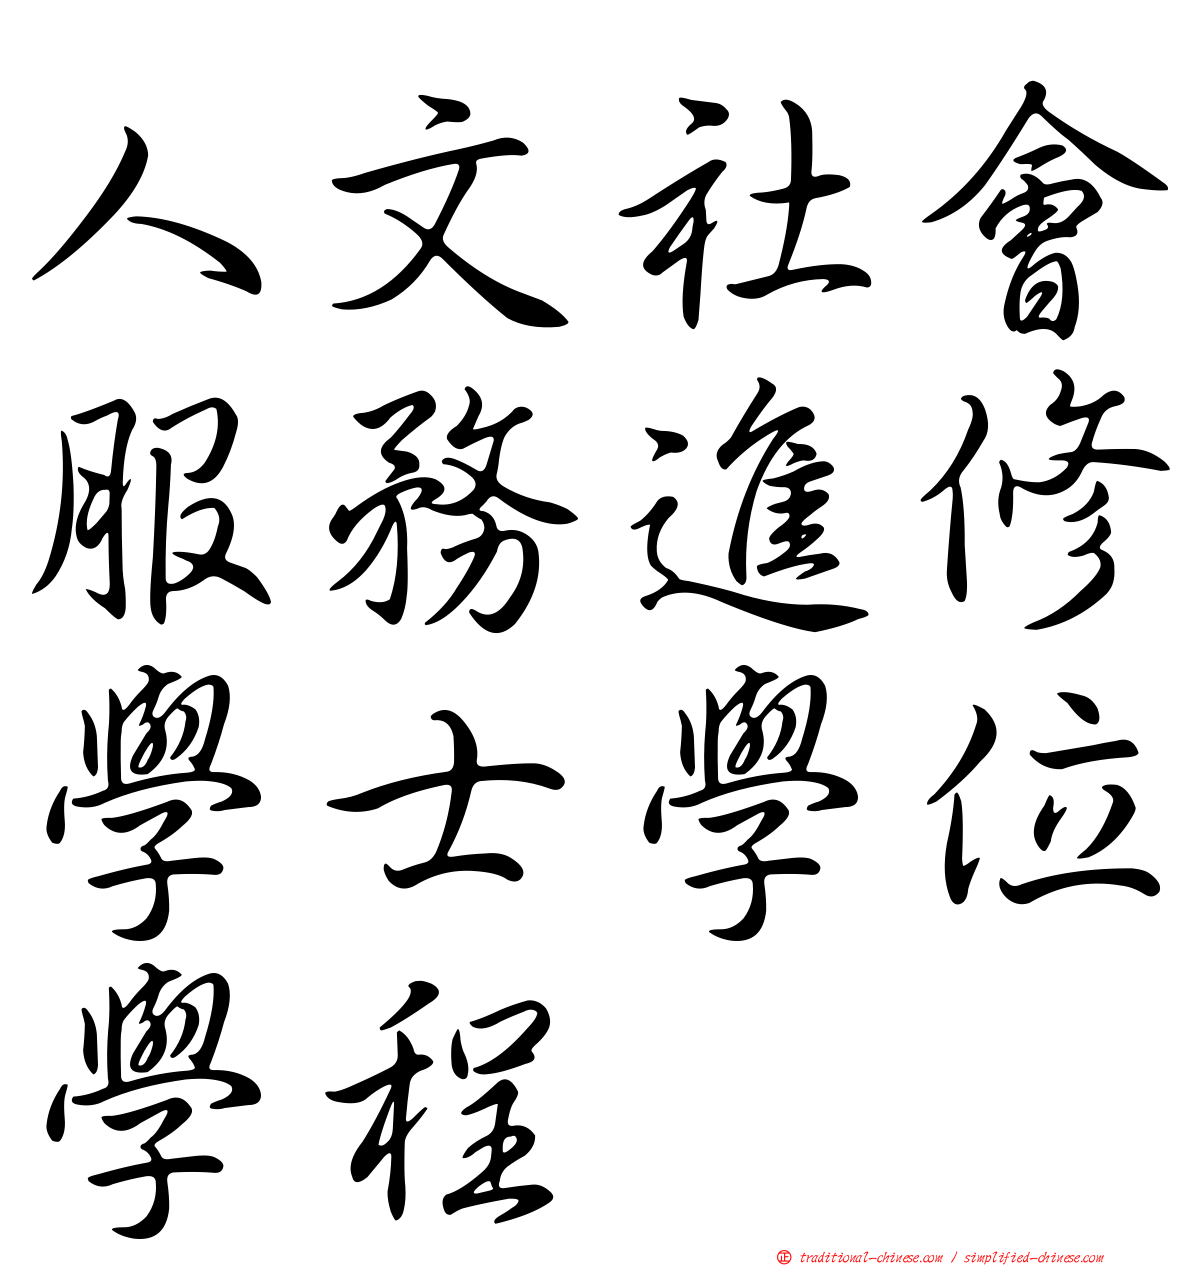 人文社會
服務進修
學士學位
學程
㊣ traditional-chinese.com / simplified-chinese.com